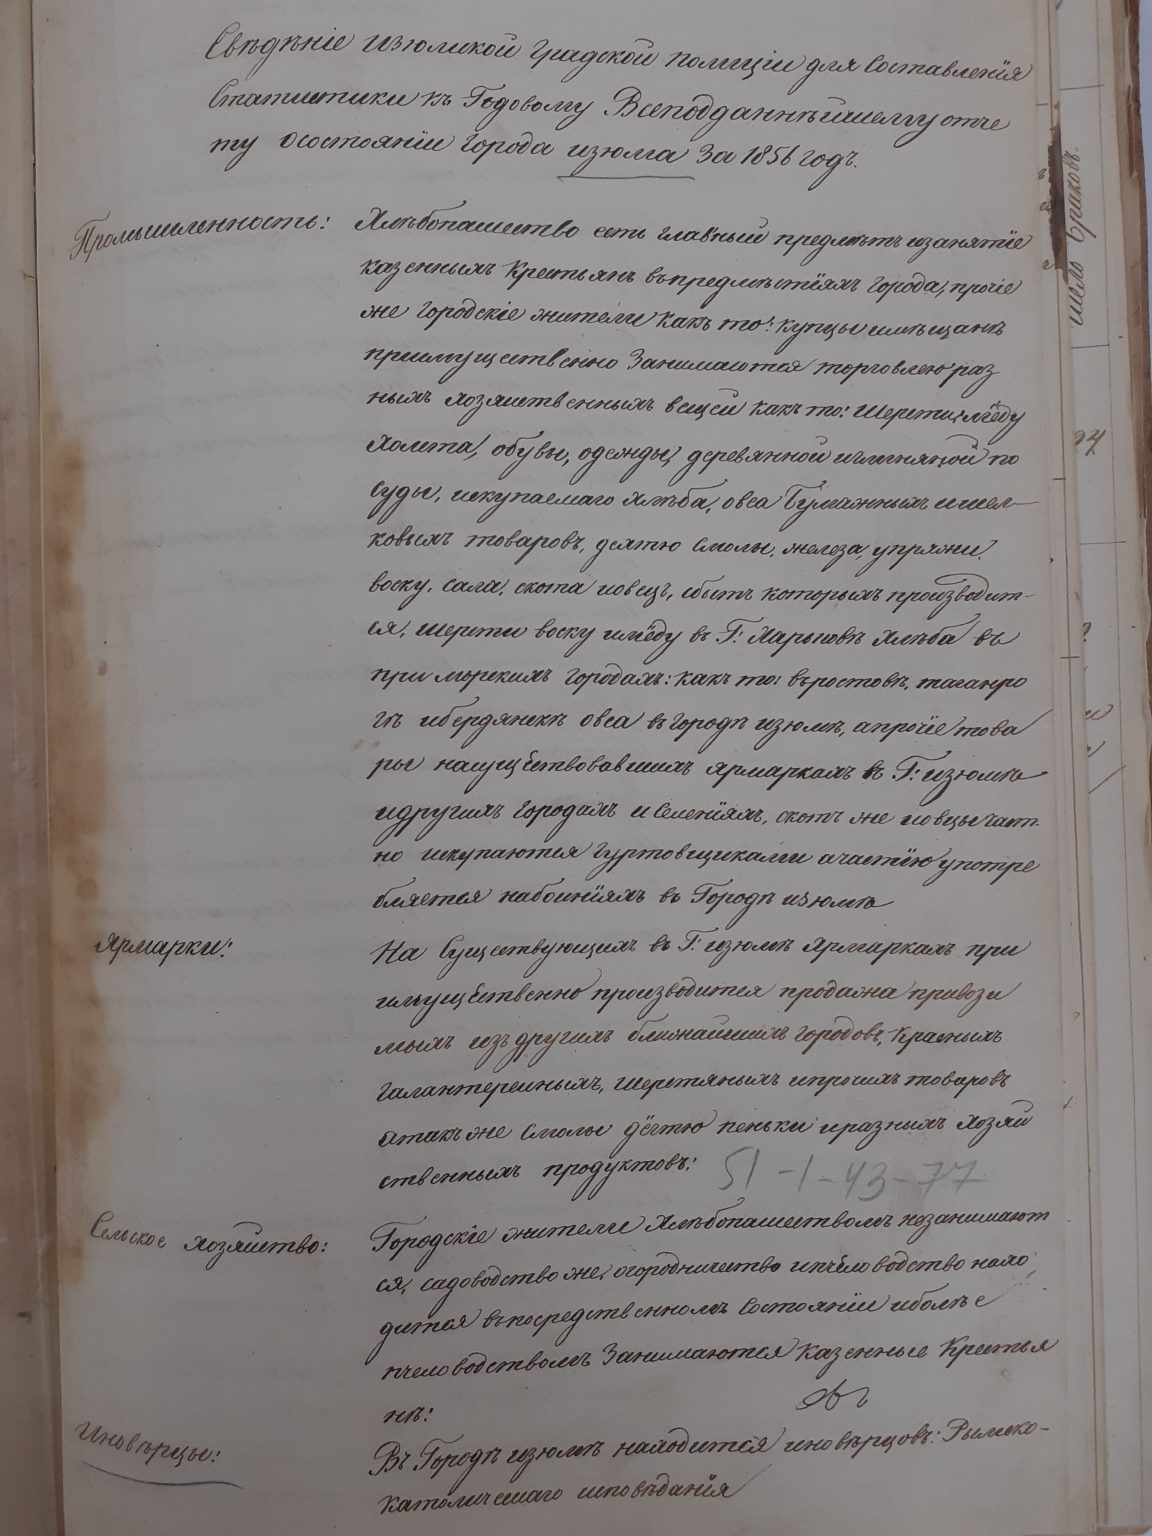 Свѣдѣніе изюмской градской полиціи для Составленія
Статистики къ Годовому Всеподданнѣйшему отче
ту о состояніи города изюма за 1856 годъ.
Промышленность: Хлѣбопашество есть главный предмѣтъ и занятіе
казенныхъ Крестьянъ въ предмѣстіяхъ города, прочіе
же городскіе жители какъ то: купцы и мѣщанѣ
приимущественно Занимаются торговлею раз
ныхъ хозяйственныхъ вещей какъ то: шерсти, мёду
холста, обувы, одежды, деревянной и глиняной по
суды, искупаемаго хлѣба, овса бумажныхъ и шел-
ковыхъ товаровъ, дегтю смолы, железа, упряжи,
воску, сала, скота и овецъ, сбытъ которыхъ производит-
ся, шерсти воску и мёду въ Г: Харьковѣ хлѣба въ
приморскихъ городахъ: какъ то: въ ростовѣ, таганро
гѣ и бердянскѣ овса въ городѣ изюмѣ, а прочіе това
ры на существовавшихъ ярмаркахъ въ Г: изюмѣ
и другихъ городахъ и Селеніяхъ, скотъ же и овцы част
но искупаются гуртовщиками а частію употре
бляется на бойніяхъ въ Городѣ изюмѣ
Ярмарки: На Существующихъ въ Г: изюмѣ Ярмаркахъ при
имущественно производится продажа привози
мыхъ изъ другихъ ближайшихъ городовъ, Красныхъ
галантерейныхъ, шерстяныхъ и прочихъ товаровъ
а такъ же смолы дёгтю пеньки и разныхъ хозяй
ственныхъ продуктовъ:
51-1-43-77
Сельское хозяйство: Городскіе жители Хлѣбопашествомъ незанимают
ся, садоводство же, огородничество и пчёловодство нахо
дится въ посредственномъ Состояніи и болѣе
пчеловодствомъ Занимаются Казенные Крестья
нѣ:
Иновѣрцы: Въ Городѣ изюмѣ находится иновѣрцовъ: Рымско-
католическаго исповѣданія
число браковъ.